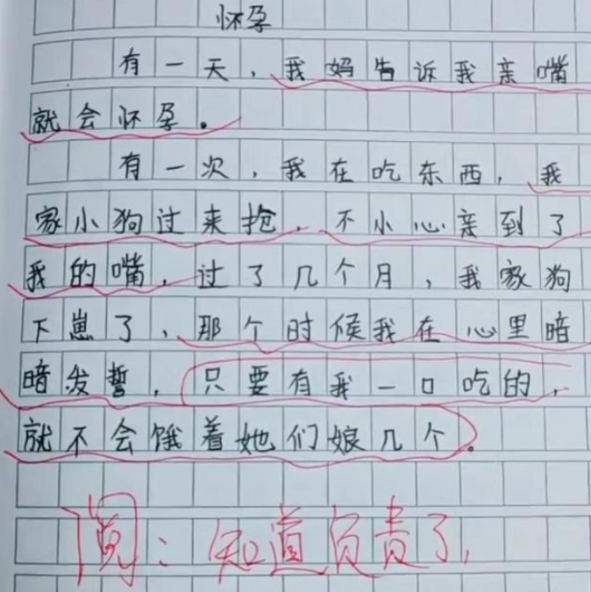 怀孕
有一天，我妈告诉我亲嘴
就会怀孕。
有一次，我在吃东西，我
家小狗过来抢，不小心亲到了
我的嘴，过了几个月，我家狗
下崽了，那个时候我在心里暗
暗发誓，只要有我一口吃的，
就不会饿着她们娘几个。
阅：知道负责了，